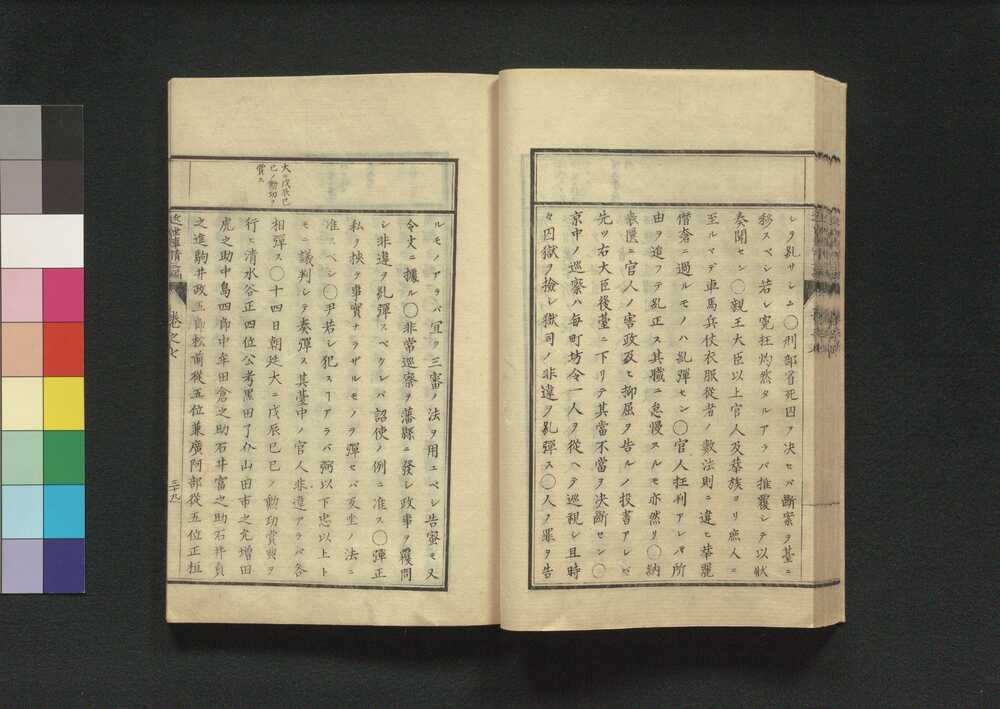 シテ乱サシム〇刑部省死囚ヲ決セバ断案ヲ臺ニ
移スベシ若シ寃狂灼然タルアラバ推覆シテ以狀
奏聞セン〇親王大臣以上官人及華族ヨリ庶人ニ
至ルマデ車馬兵仗衣服從者ノ數法則ニ違ヒ華麗
僭奢ニ過ルモノハ乱彈セン〇官人枉判アレバ所
由ヲ追フテ乱正ス其職ニ怠慢スルモ亦然リ〇納
匭ニ官人ノ害政及ヒ抑屈ヲ告ルノ投書アレバ
先ヅ右大臣後臺ニ下リテ其當不當ヲ決斷セン〇
京中ノ巡察ハ毎町坊令一人ヲ從ヘテ巡視シ且時
々囚獄ヲ撿シ獄司ノ非違ヲ乱彈ス〇人ノ罪ヲ告
ルモノアラバ宜ク三審ノ法ヲ用ユベシ告蜜モ又
令文ニ據ル〇非常巡察ヲ藩縣ニ發シ政事ヲ覆問
シ非違ヲ乱彈スベクレバ詔使ノ例ニ准ス〇彈正
私ヲ挾ク事實ナラザルモノヲ彈セバ反坐ノ法ニ
准スベシ〇尹若シ犯スヿアラバ弼以下忠以上ト
モニ議判シテ奏彈ス其臺中ノ官人非違アラバ各
相彈ス〇十四日朝廷大ニ戊辰己巳ノ勳功賞典ヲ
行ヒ清水谷正四位公考黒田了介山田市之允増田
虎之助中島四郎中牟田倉之助石井富之助石井貞
之進駒井政五郎松前從五位兼廣阿部從五位正桓
大ニ戊辰己
巳ノ勳功ヲ
賞ス
近世事情三編
卷之七
三十九